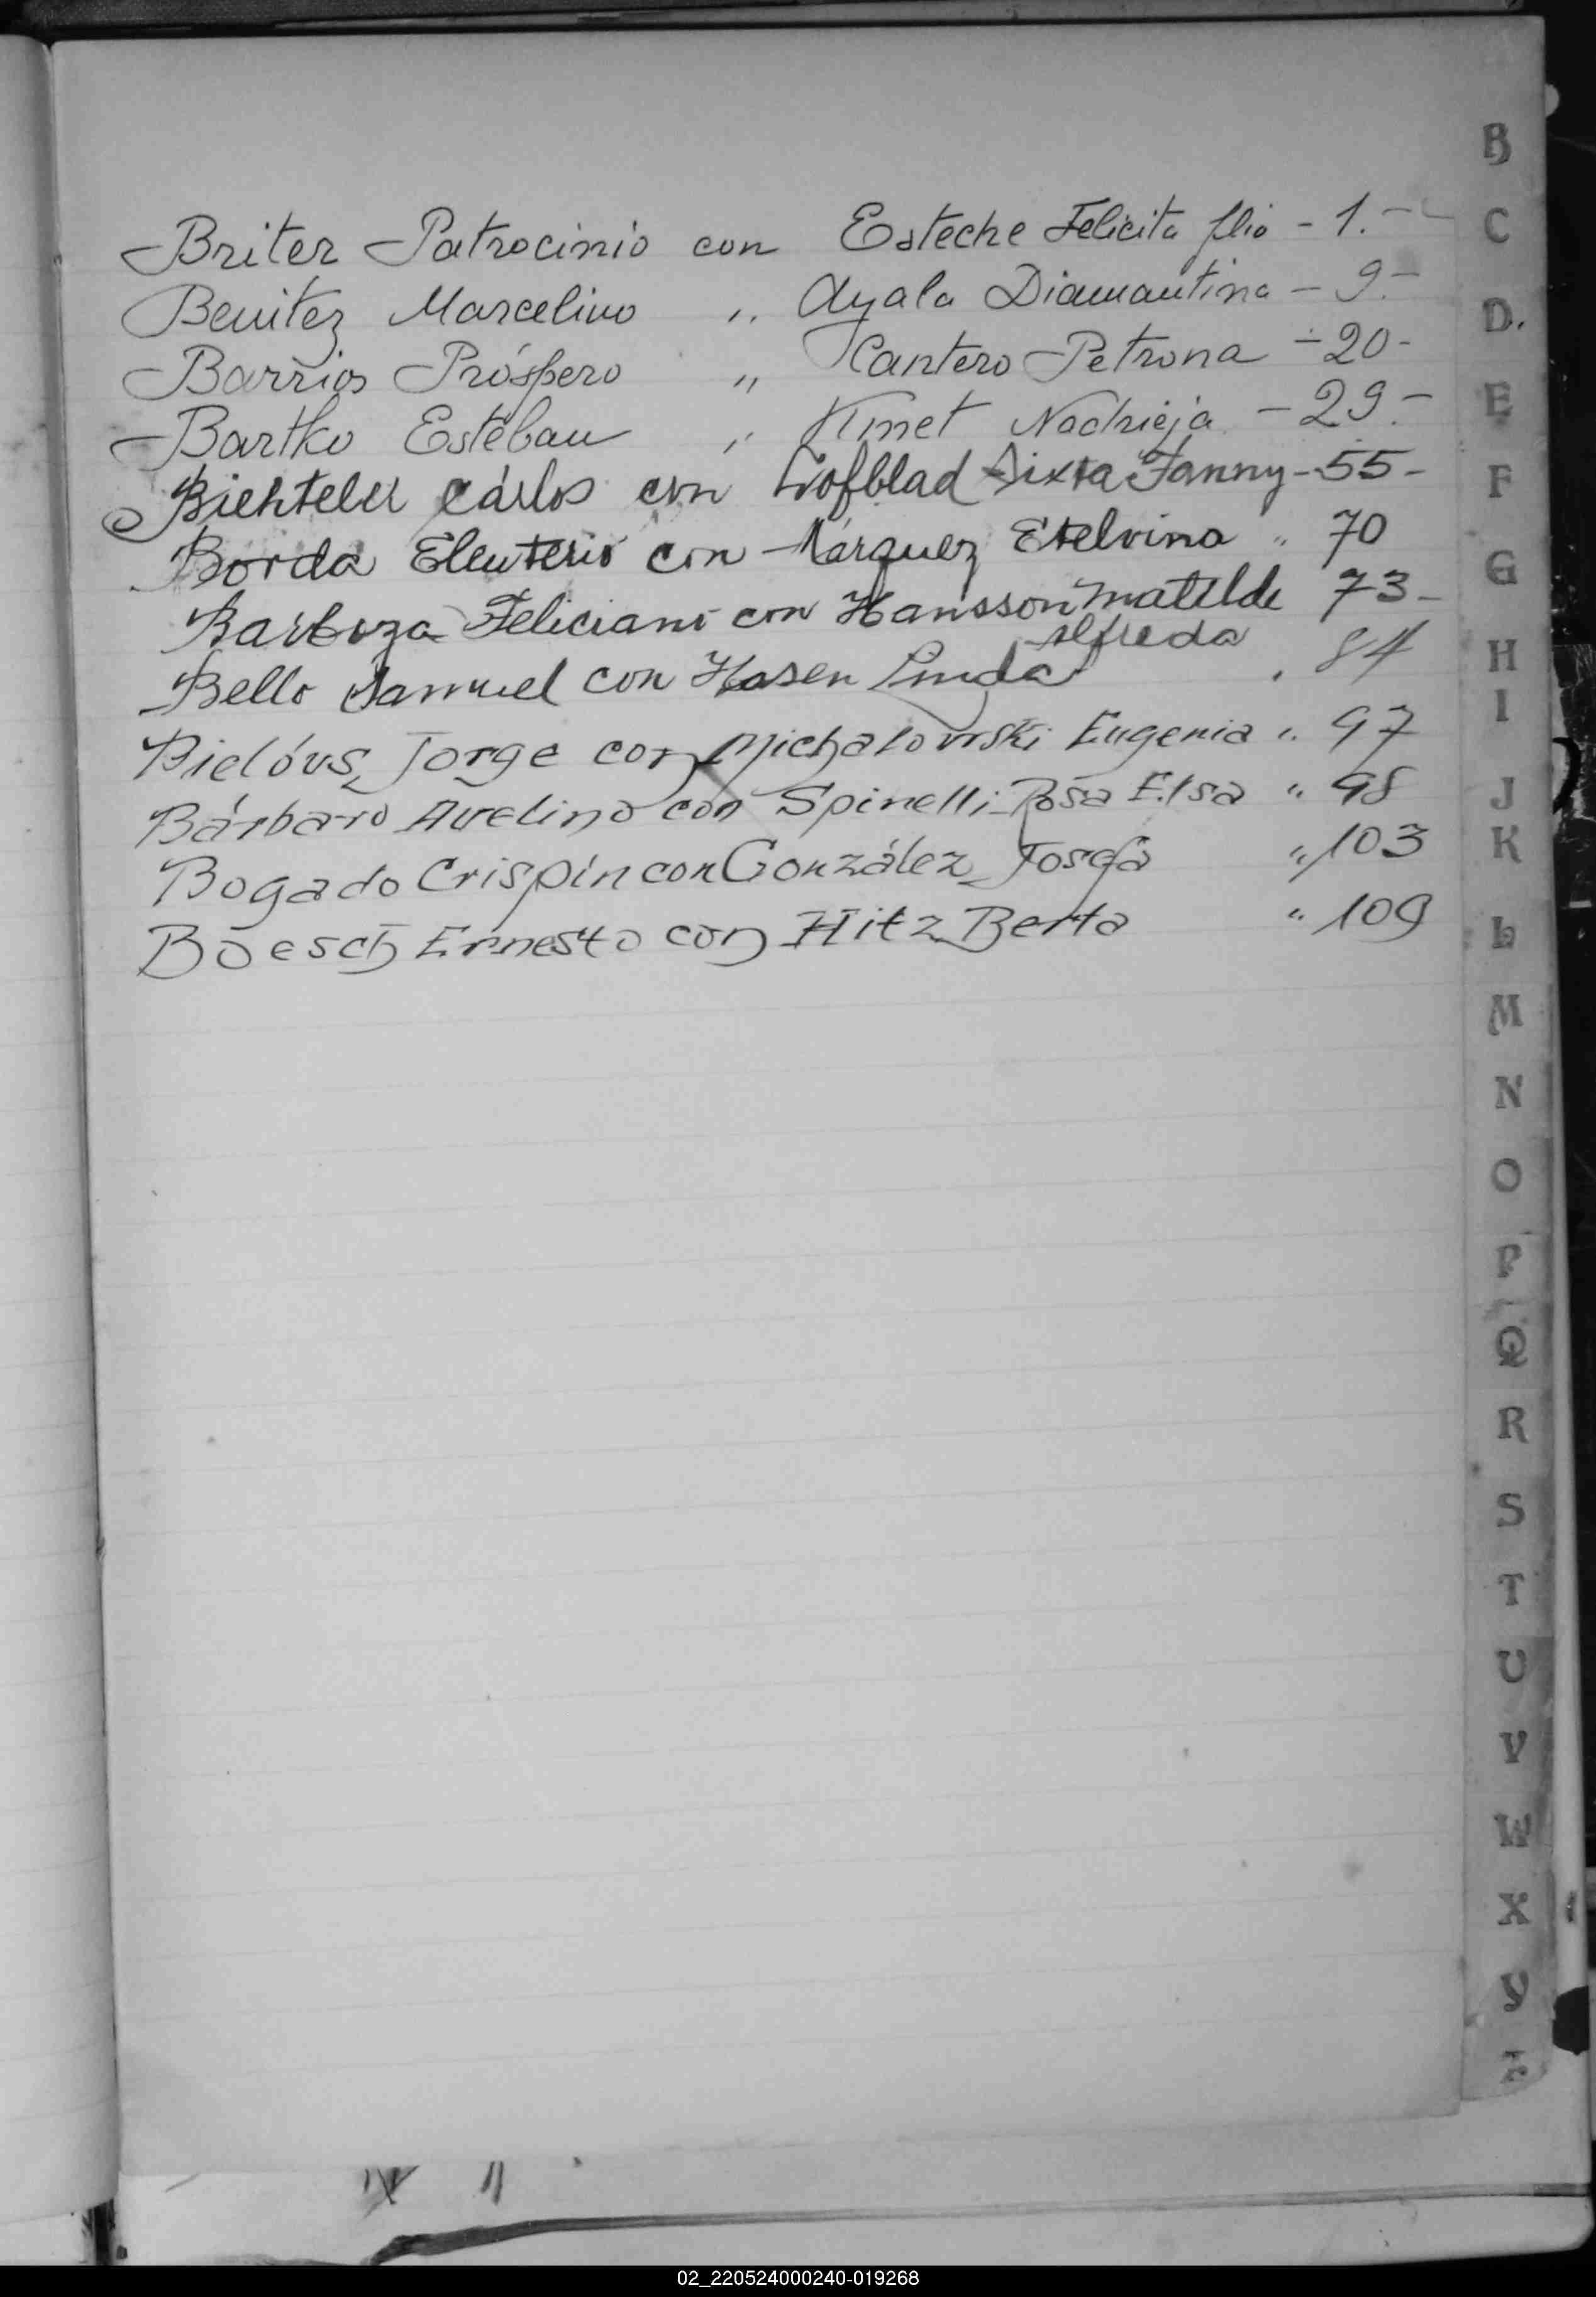 Briter Patrocinio con Esteche Felicita flio - 1.-
Benitez Marcelino ,, Ayala Diamantina - 9.-
Barrios Próspero ,, Cantero Petrona - 20-
Bartko Esteban ,, Kmet Nadzieja - 29.-
Biehteler Cárlos con Lofblad Sixta Fanny - 55-
Borda Eleuterio con Márquez Etelvina ,, 70
Barboza Feliciano con Hansson Matilde 73-
Alfreda
Bello Samuel con Hasen Linda . 84
Bielóus, Jorge con Michalowski Eugenia ,, 97
Bárbaro Avelino con Spinelli Rosa Elsa " 98
Bogado Crispín con González Josefa " 103
Boesch Ernesto con Hitz Berta " 109
B
C
D.
E
F
G
H
I
J
K
L
M
N
O
P
Q
R
S
T
U
V
W
X
Y
Z
02_220524000240-019268